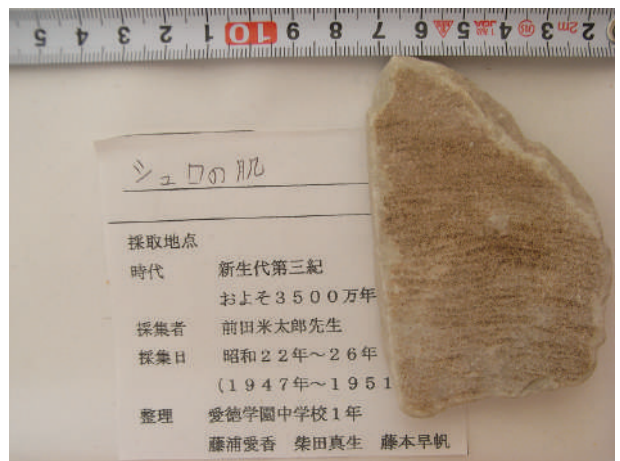 5 4 3 2 1 10 9 8 7 6 5 4 3 2
2m
シュロの肌
採取地点
時代 新生代第三紀
およそ3500万年
採集者 前田米太郎先生
採集日 昭和22年～26年
(1947年～1951
整理 愛徳学園中学校1年
藤浦愛香 柴田真生 藤本早帆